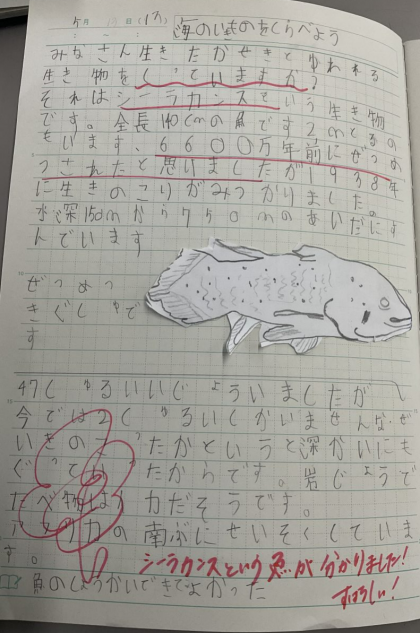 月 日(　)海のいきものをくらべよう
みなさん生きたかせきとゆわれる
生き物をしっていますか?
それはシーラカンスという生き物
です。全長140cmの魚です2mとるの
もいます、6600万年前にぜつめ
つされたと思いましたが1938年
に生きのこりがみつかりました。
水深150mから750mのあいだにす
んでいます
ぜつめつ
きぐしゅで
す
47しゅるいいじょういましたが
今では2しゅるいしかいませんなぜ
いきのこったかというと深かいにも
ぐっていたからです。岩じょうで
たべ物は力だそうです。
アフリカの南ぶにせいそくしていま
す。
シーラカンスという魚が分かりました!
すばらしい!
魚のしょうかいできてよかった